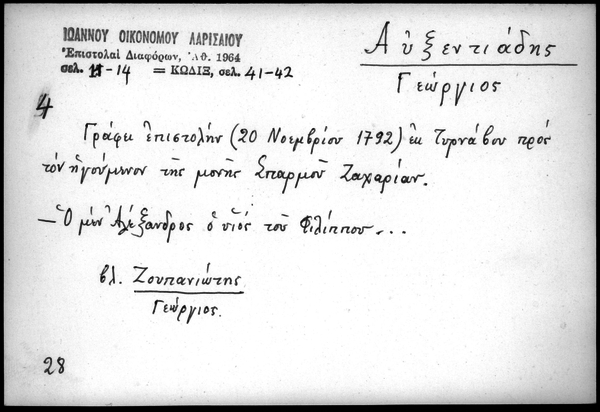 ΙΩΑΝΝΟΥ ΟΙΚΟΝΟΜΟΥ ΛΑΡΙΣΑΙΟΥ
Ἐπιστολαὶ Διαφόρων, Ἀθ. 1964
σελ. 11-14 = ΚΩΔΙΞ, σελ. 41-42
Αὐξεντιάδης
Γεώργιος
4
Γράφει ἐπιστολὴν (20 Νοεμβρίου 1792) ἐκ Τυρνάβου πρὸς
τὸν ἡγούμενον τῆς μονῆς Σπαρμοῦ Ζαχαρίαν.
— Ὁ μὲν Ἀλέξανδρος ὁ υἱὸς τοῦ Φιλίππου...
βλ. Ζουπανιώτης
Γεώργιος.
28